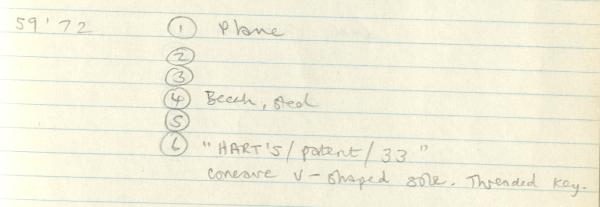 59'72 ① Plane
②
③
④ Beech, steel
⑤
⑥ "HART'S / patent / 33"
concave v-shaped sole. Threaded key.